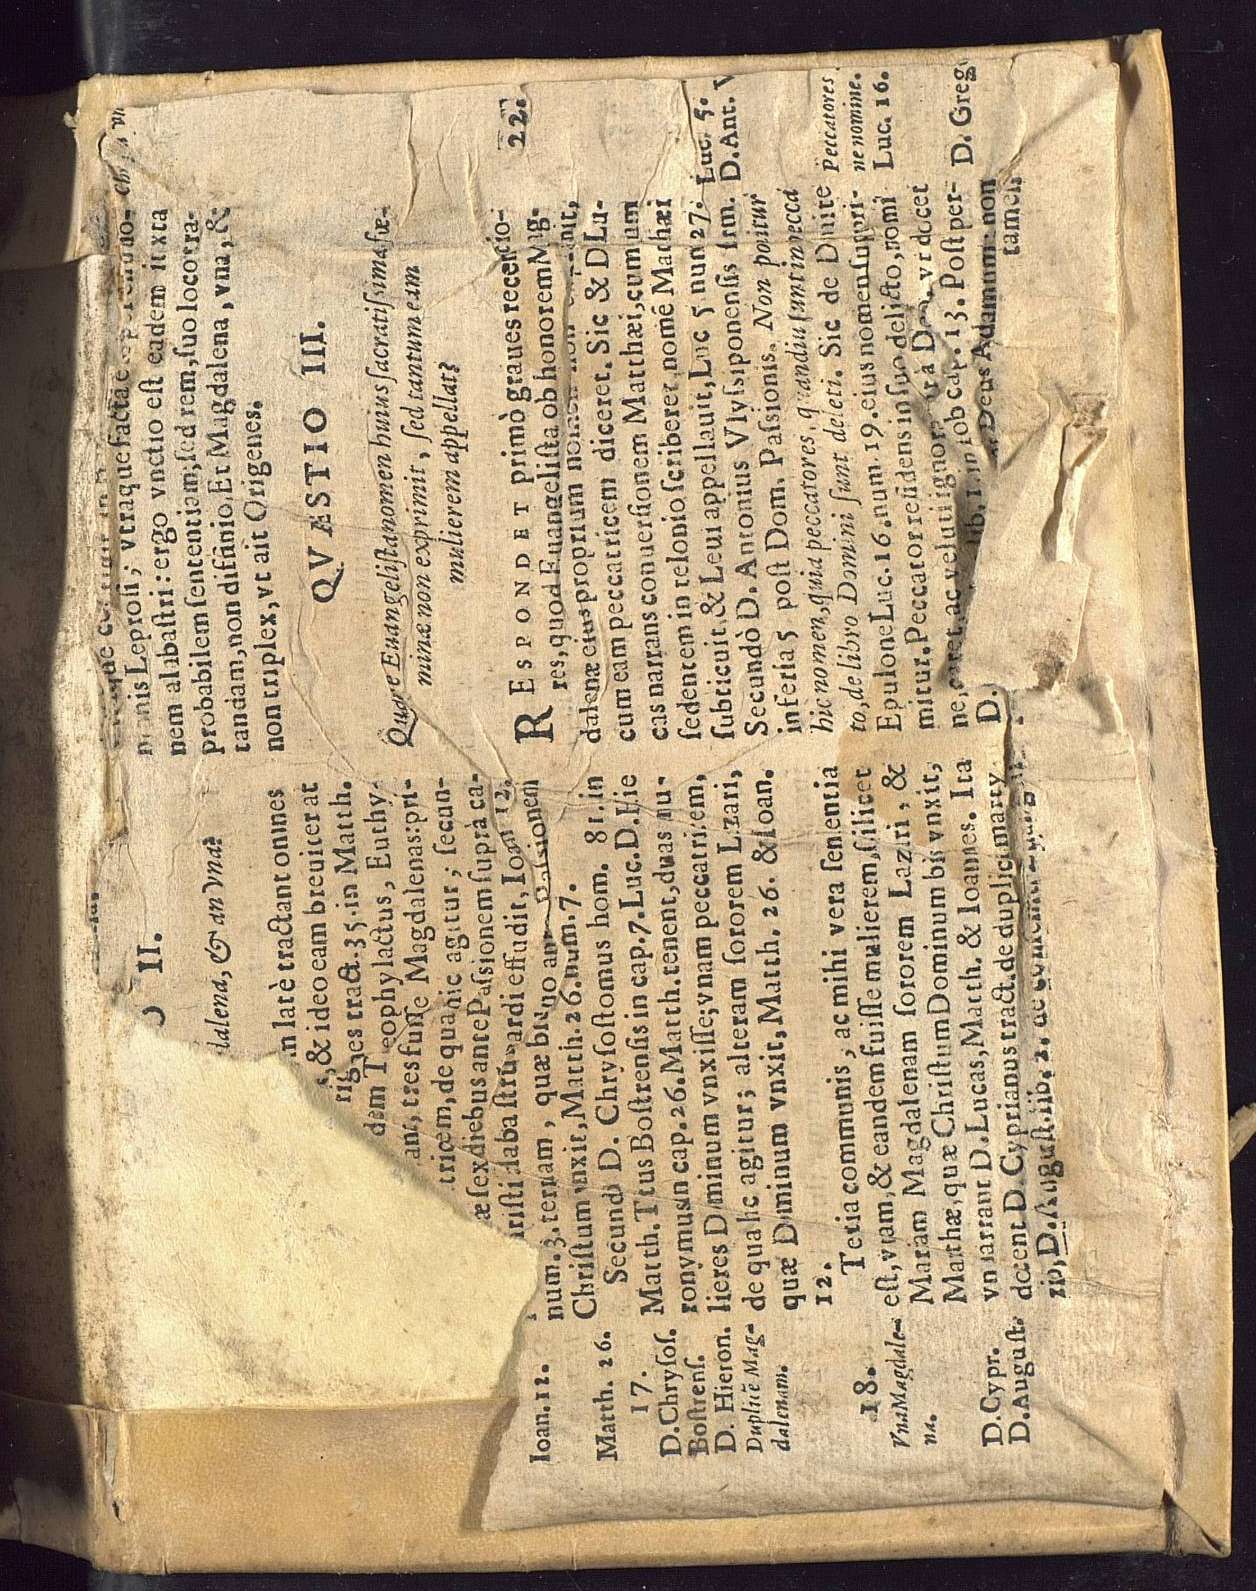 II.
dalena, & an vna?
latè tractant omnes
& ideo eam breuiter at
tract. 35. in Matth.
Euthy-
ant, tres fuisse Magdalenas: pri-
tricem, de qua hic agitur; secun-
æ sex diebus ante Passionem supra ca-
alabastrum nardi effudit, Ioan. 12.
Ioan. 12.
num. 3. tertiam, quæ
Christum vnxit, Matth. 26. num. 7.
Matth. 26.
Secundò D. Chrysostomus hom. 81. in
17.
Matth. Titus Bostrensis in cap. 7. Luc. D. Hie
D. Chrysos.
Bostrens.
ronymus in cap. 26. Matth. tenent, duas mu-
D. Hieron.
lieres Dominum vnxisse; vnam peccatricem,
Duplicē Mag-
dalenam.
de qua hic agitur; alteram sororem Lazari,
quæ Dominum vnxit, Matth. 26. & Ioan.
12.
18.
Tertia communis, ac mihi vera sententia
Vna Magdale-
na.
est, vnam, & eandem fuisse mulierem, scilicet
Mariam Magdalenam sororem Lazari, &
Marthæ, quæ Christum Dominum bis vnxit,
D. Cypr.
vn narrant D. Lucas, Matth. & Ioannes. Ita
D. August.
docent D. Cyprianus tract. de duplici marty
rio, D. August. lib. 2. de
nis Leprosi; vtraque facta
nem alabastri: ergo vnctio est eadem iuxta
probabilem sententiam; sed rem, suo loco tra-
tandam, non diffinio. Et Magdalena, vna, &
non triplex, vt ait Origenes.
QVÆSTIO III.
Quare Euangelista nomen huius sacratissimæ fœ-
minæ non exprimit, sed tantum eam
mulierem appellat?
22.
RESPONDET primò graues recentio-
res, quod Euangelista ob honorem Mag-
dalenæ eius proprium nomen non
cum eam peccatricem diceret. Sic & D. Lu-
cas narrans conuersionem Matthæi, cum eum
sedentem in telonio scriberet, nomē Matthæi
subticuit, & Leui appellauit, Luc 5 num 27.
Luc. 5.
Secundò D. Antonius Vlyssiponensis serm.
D. Ant. V
in feria 5 post Dom. Passionis. Non ponitur
hic nomen, quia peccatores, quandiu sunt in pecca
Peccatores
to, de libro Domini sunt deleti. Sic de Diuite
ne nomine.
Epulone Luc. 16. num. 19. eius nomen suppri-
Luc. 16.
mitur. Peccator residens in suo delicto, nomi
ne, caret, ac veluti ignoratur à Deo, vt docet
D. Grego
D.
lib. 1. in Iob cap. 13. Post per-
Deus Adamum: non
tamen